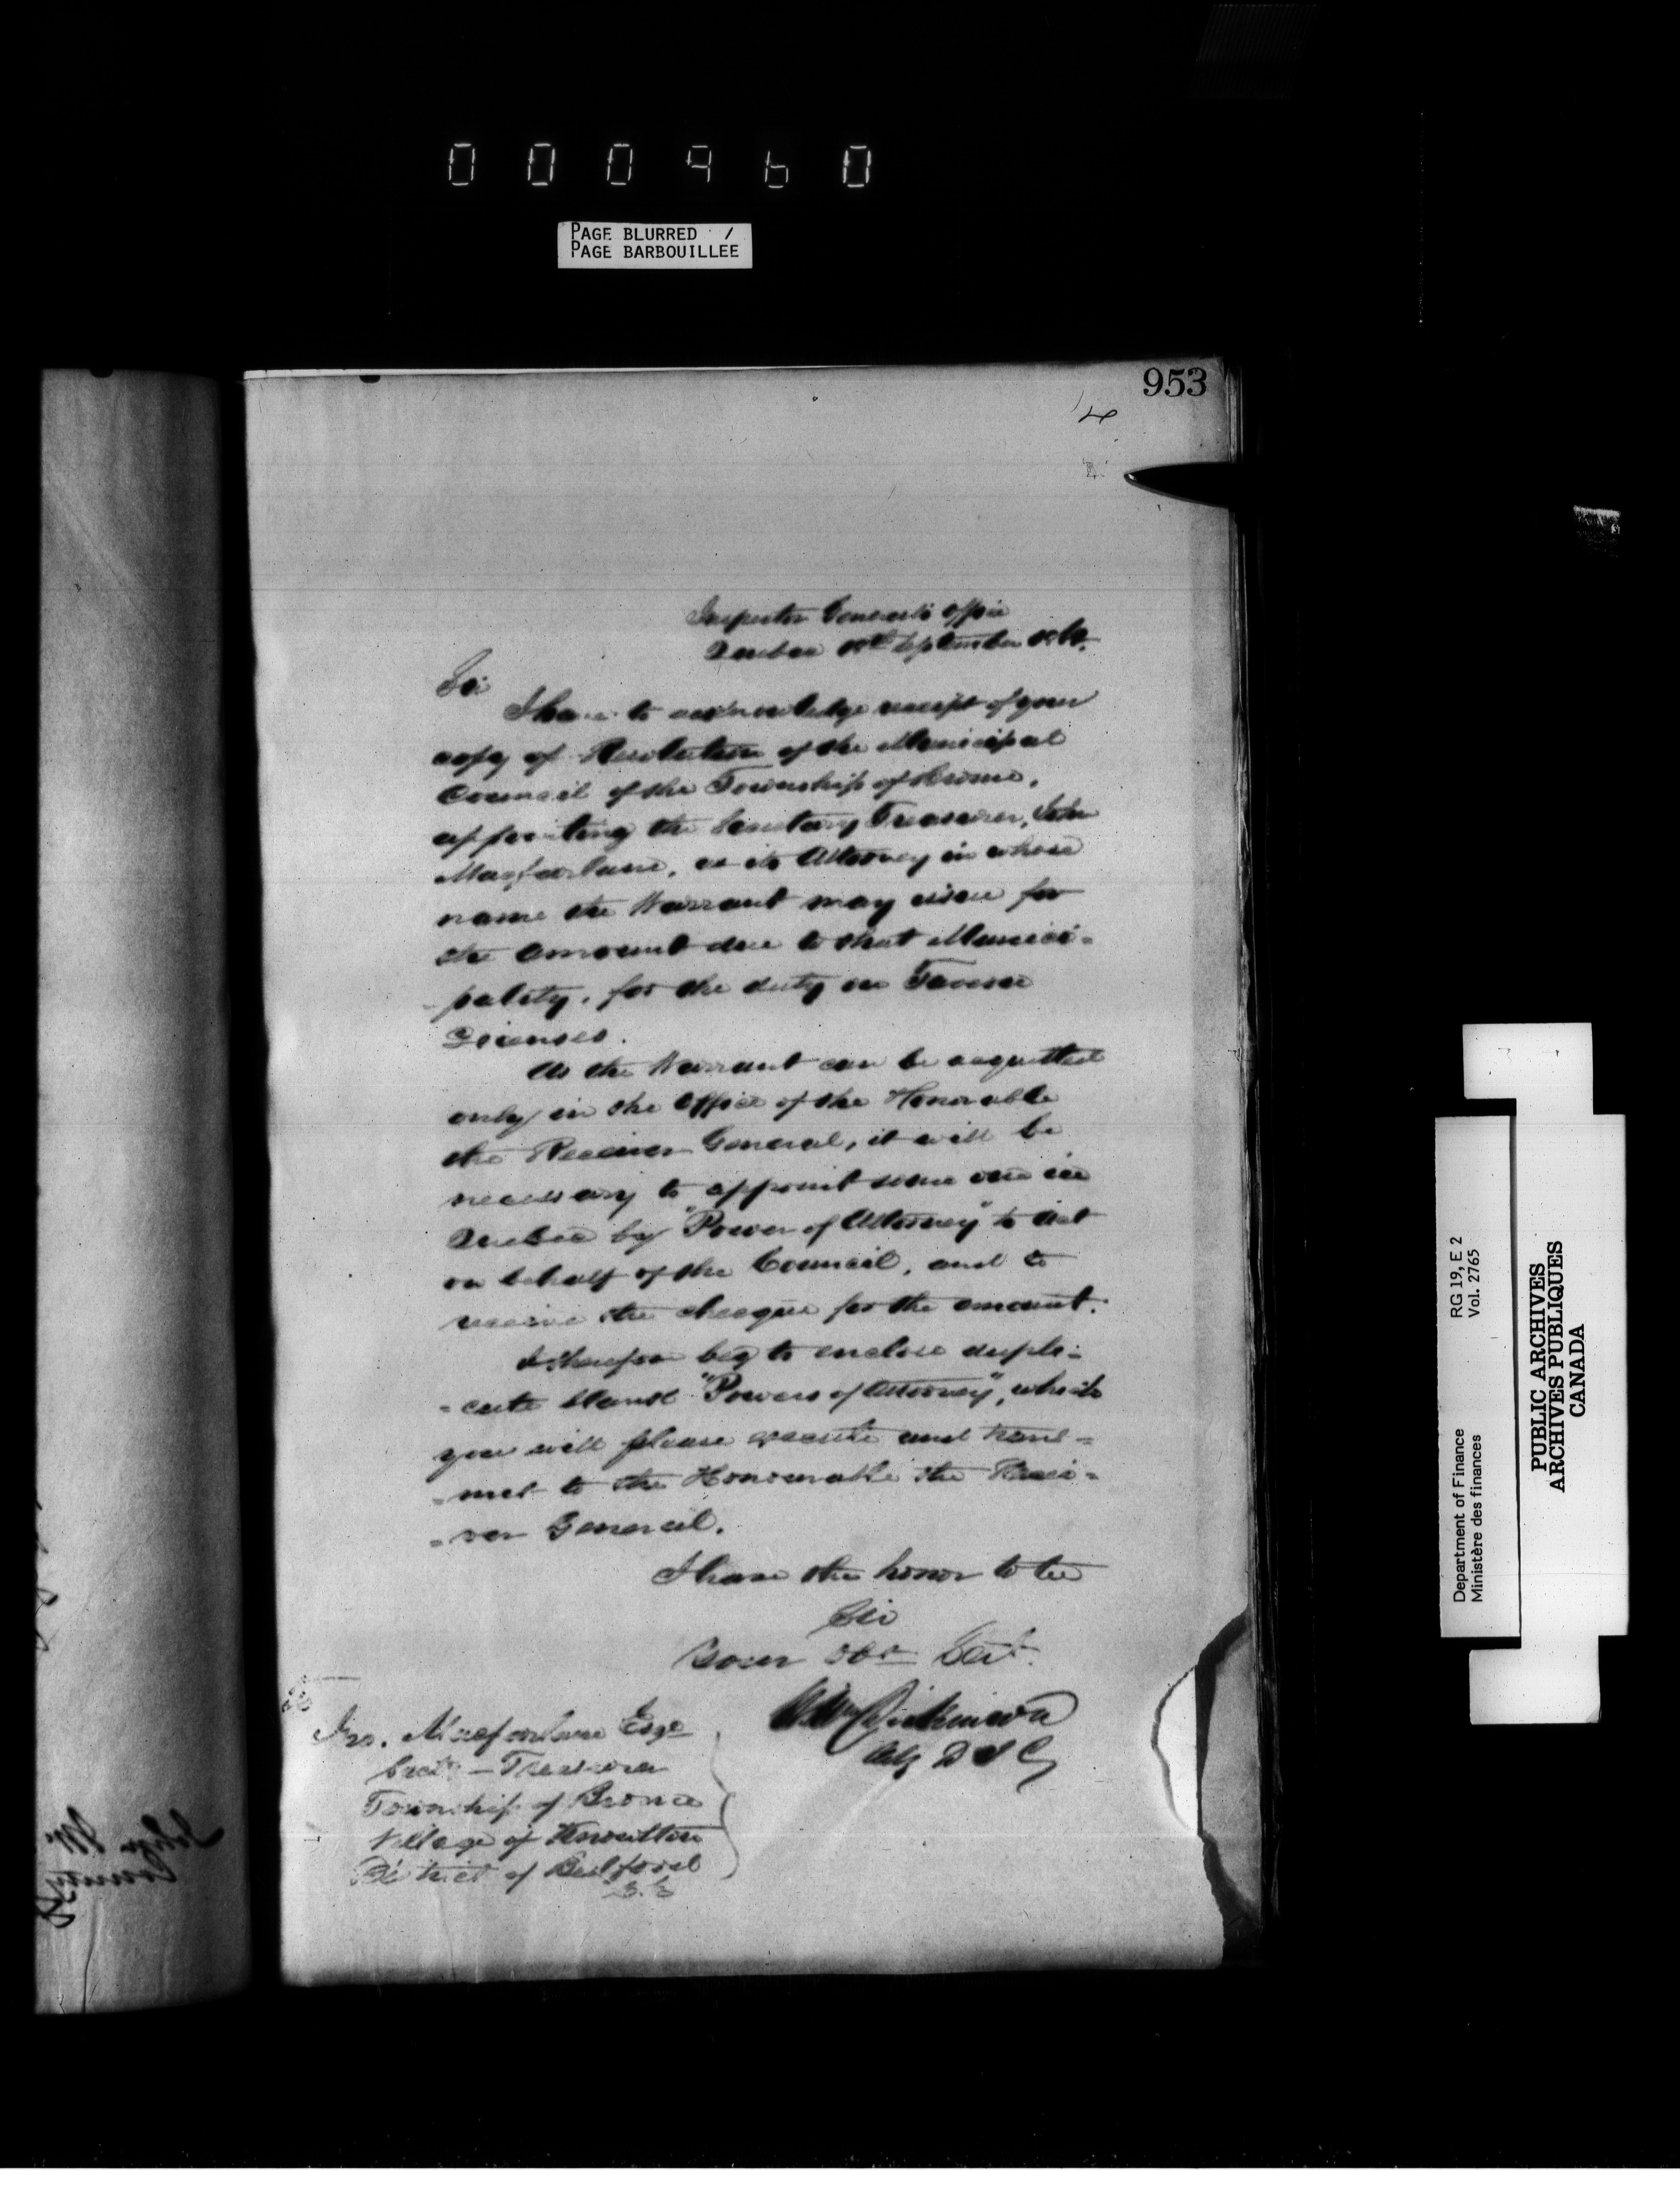 000960
PAGE BLURRED /
PAGE BARBOUILLEE
953
Inspector General's Office
Quebec September
Sir
I have to acknowledge receipt of your
copy of Resolution of the Municipal
Council of the Township of Brome,
appointing the Secretary Treasurer, John
Macfarlane, as its Attorney in whose
name the Warrant may issue for
the amount due to that Munici=
pality, for the duty on Tavern
Licenses.
As the Warrant can be acquitted
only in the Office of the Honorable
the Receiver General, it will be
necessary to appoint some one in
Quebec by "Power of Attorney" to act
on behalf of the Council, and to
receive the cheque for the amount.
I therefore beg to enclose dupli=
=cate blank "Powers of Attorney", which
you will please execute and trans=
=mit to the Honourable the Recei=
=ver General.
I have the honor to be
Sir
Your Obt Sert.
Wm Dickinson
Actg D I G
Jno. Macfarlane Esqe
Secty-Treasurer
Township of Brome
Village of Knowlton
District of Bedford
Department of Finance RG 19, E 2
Ministère des finances Vol. 2765
PUBLIC ARCHIVES
ARCHIVES PUBLIQUES
CANADA